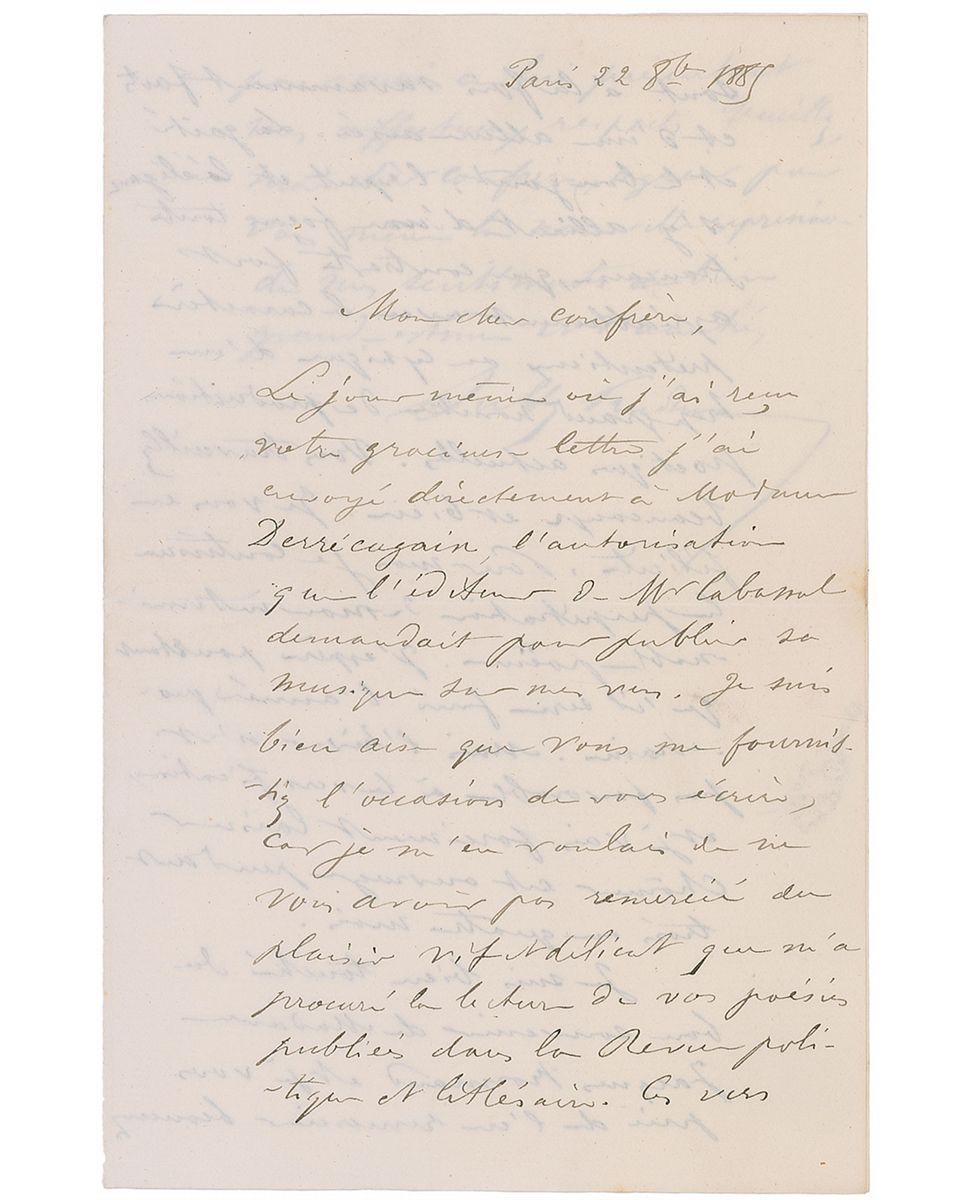 Paris 22 8bre 1885
Mon cher confrère,
Le jour même où j'ai reçu
votre gracieuse lettre j'ai
envoyé directement à Madame
Derrécagaix, l'autorisation
que l'éditeur de Mr Labassal
demandait pour publier sa
musique sur mes vers. Je suis
bien aise que vous me fournis-
-siez l'occasion de vous écrire,
car je m'en voulais de ne
vous avoir pas remercié du
plaisir vif et délicat que m'a
procuré la lecture de vos poésies
publiées dans la Revue poli-
-tique et littéraire. Ces vers